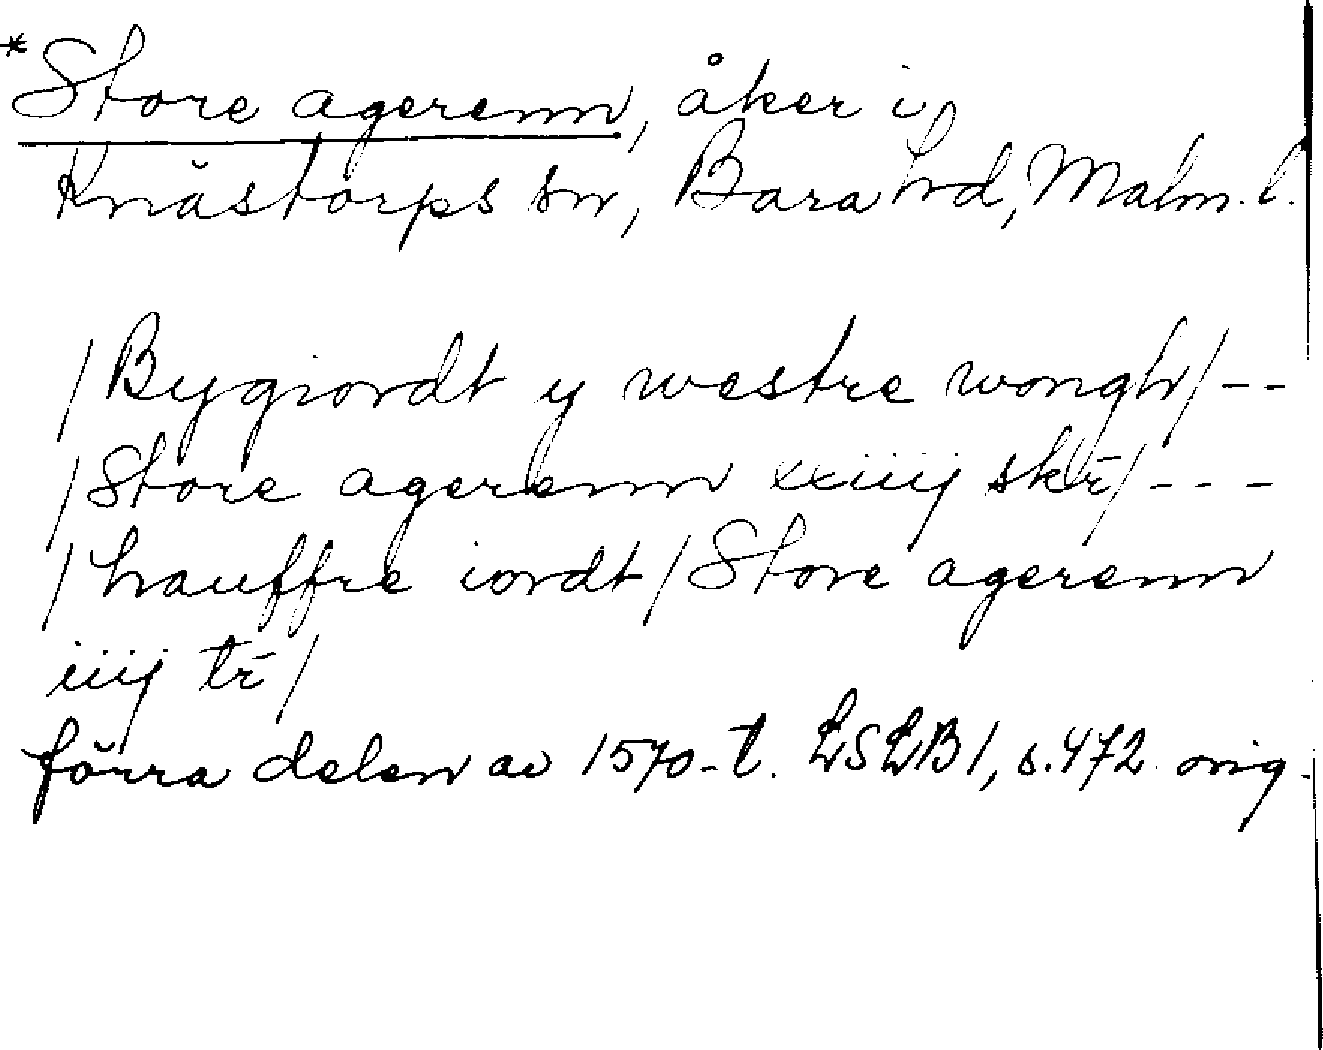 *Store agerenn, åker i
Knästorps sn, Bara hd, Malm. l.
/Bygiordt y westre wongh/--
/Store agerenn xxiiij skr̄/---
/hauffre iordt/Store agerenn
iiij tr̄/
förra delen av 1570-t. LSLB 1, s. 472. orig.